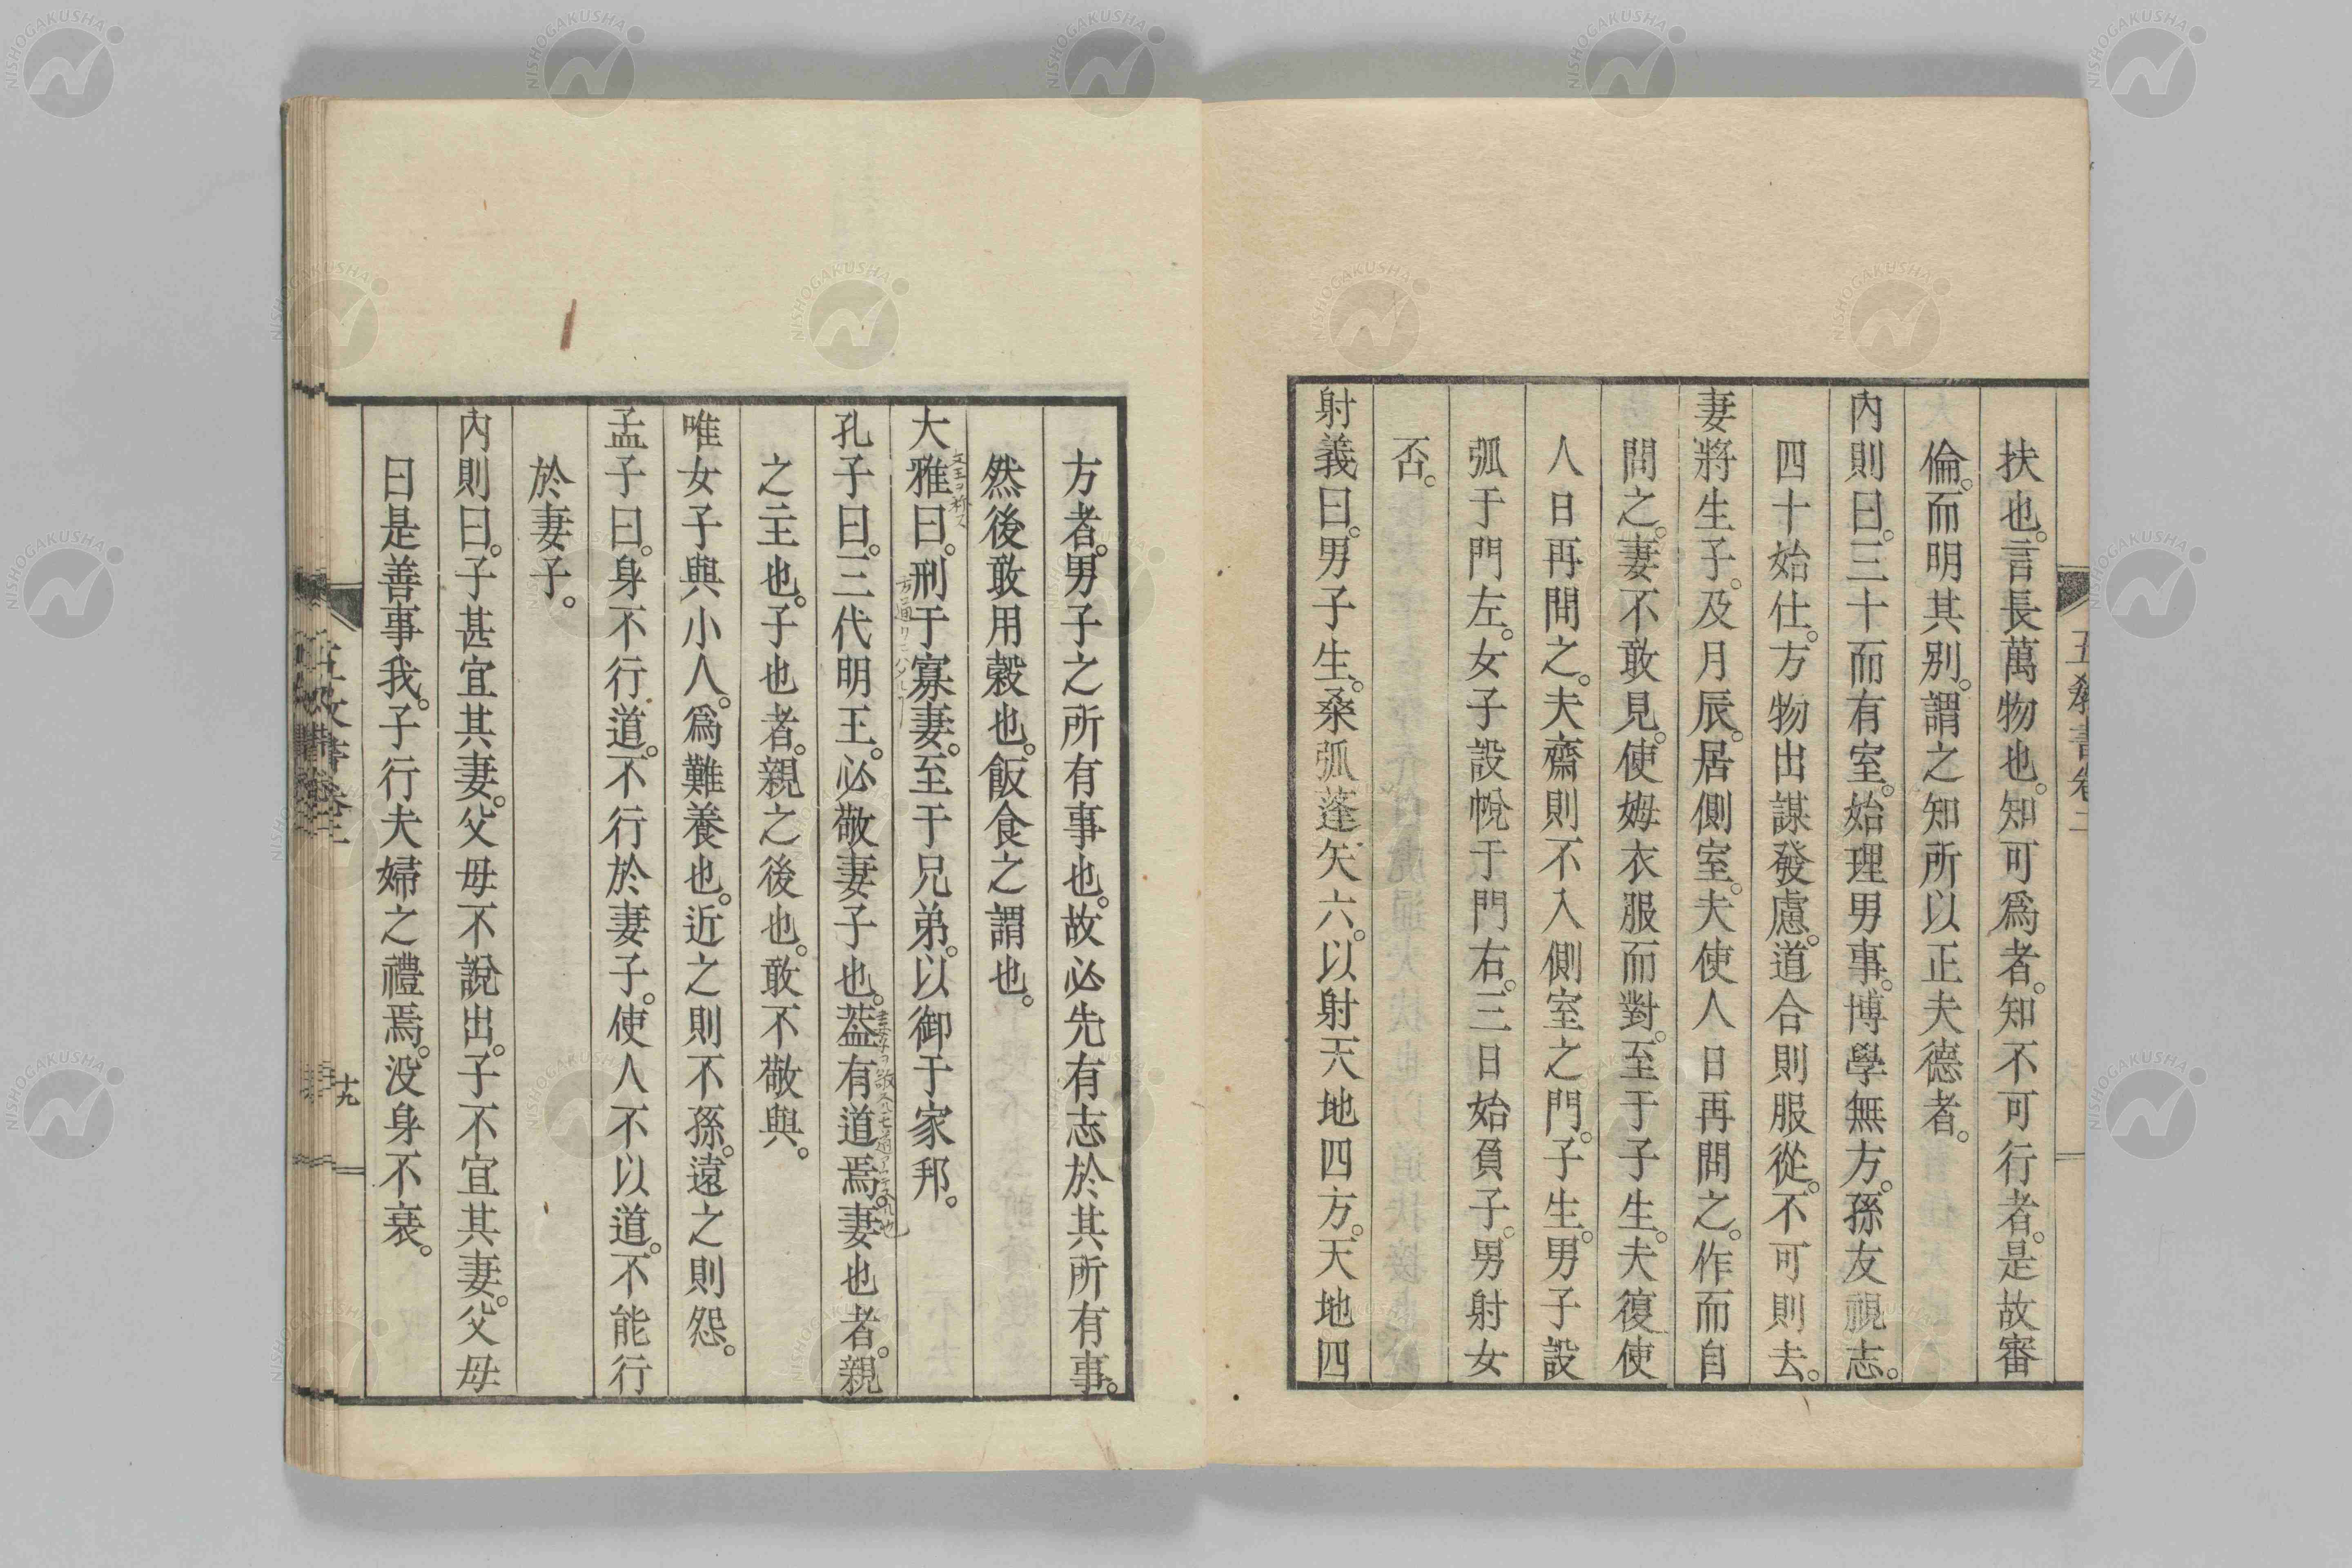 五教書卷二
扶也。言長萬物也。知可爲者。知不可行者。是故審
倫。而明其別。謂之知。所以正夫德者。
內則曰。三十而有室。始理男事。博學無方。孫友視志。
四十始仕。方物出謀發慮。道合則服從。不可則去。
妻將生子。及月辰。居側室。夫使人日再問之。作而自
問之。妻不敢見。使姆衣服而對。至于子生。夫復使
人日再問之。夫齋則不入側室之門。子生。男子設
弧于門左。女子設帨于門右。三日始負子。男射女
否。
射義曰。男子生。桑弧蓬矢六。以射天地四方。天地四
方者。男子之所有事也。故必先有志於其所有事。
然後敢用穀也。飯食之謂也。
大雅曰。刑于寡妻。至于兄弟。以御于家邦。
孔子曰。三代明王。必敬妻子也。葢有道焉。妻也者。親
之主也。子也者。親之後也。敢不敬與。
唯女子與小人。爲難養也。近之則不孫。遠之則怨。
孟子曰。身不行道。不行於妻子。使人不以道。不能行
於妻子。
內則曰。子甚宜其妻。父母不說出。子不宜其妻。父母
曰是善事我。子行夫婦之禮焉。沒身不衰。
十九
NISHOGAKUSHA